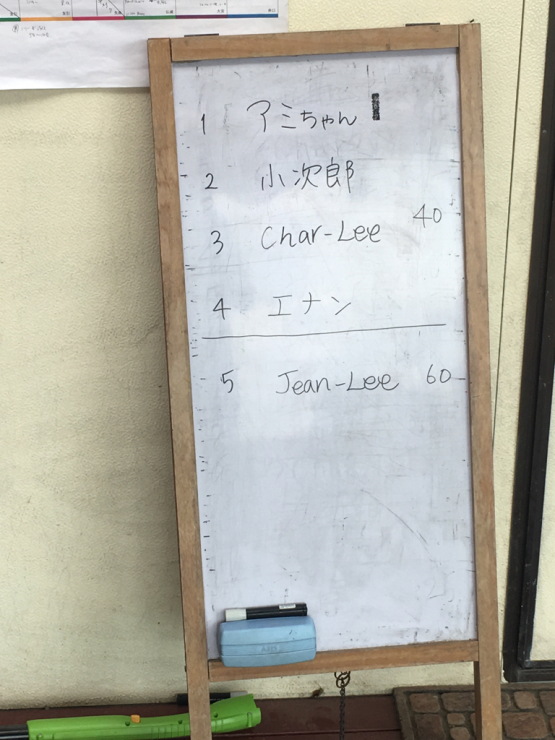 1 アミちゃん
2 小次郎
3 Char-Lee 40
4 エナン
5 Jean-Lee 60